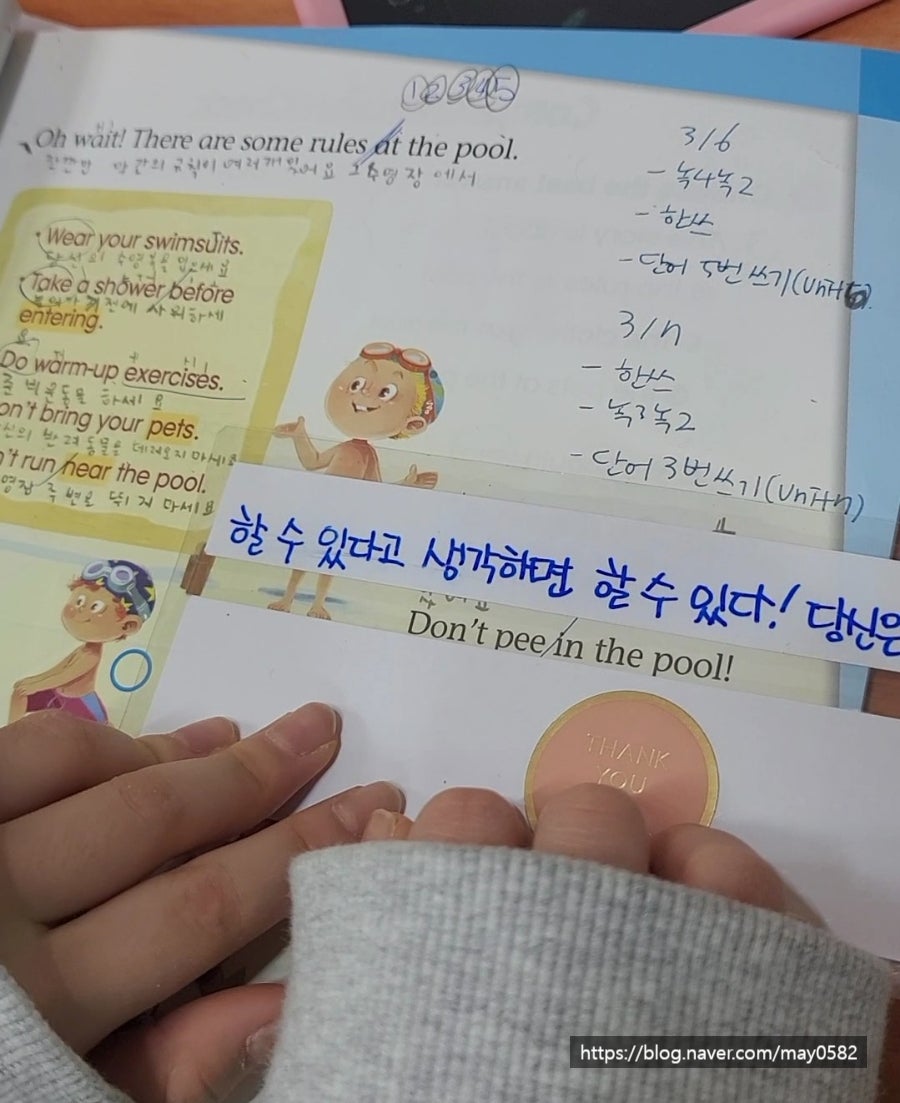 ①②③④⑤
Oh wait! There are some rules at the pool.
잠깐만 약간의 규칙이 여러개 있어요 그 수영장에서
• Wear your swimsuits.
당신의 수영복을 입으세요
• Take a shower before
전에 샤워하세
entering.
요
Do warm-up exercises.
준비운동을 하세요
on't bring your pets.
신의 반려동물을 데려오지 마세요
't run near the pool.
영장 주변을 뛰지 마세요
3/6
- 녹4녹2
- 한쓰
- 단어 5번 쓰기(Unit6)
3/11
- 한쓰
- 녹3녹2
- 단어 3번 쓰기(Unit7)
할 수 있다고 생각하면 할 수 있다! 당신은
Don't pee in the pool!
THANK
YOU
https://blog.naver.com/may0582